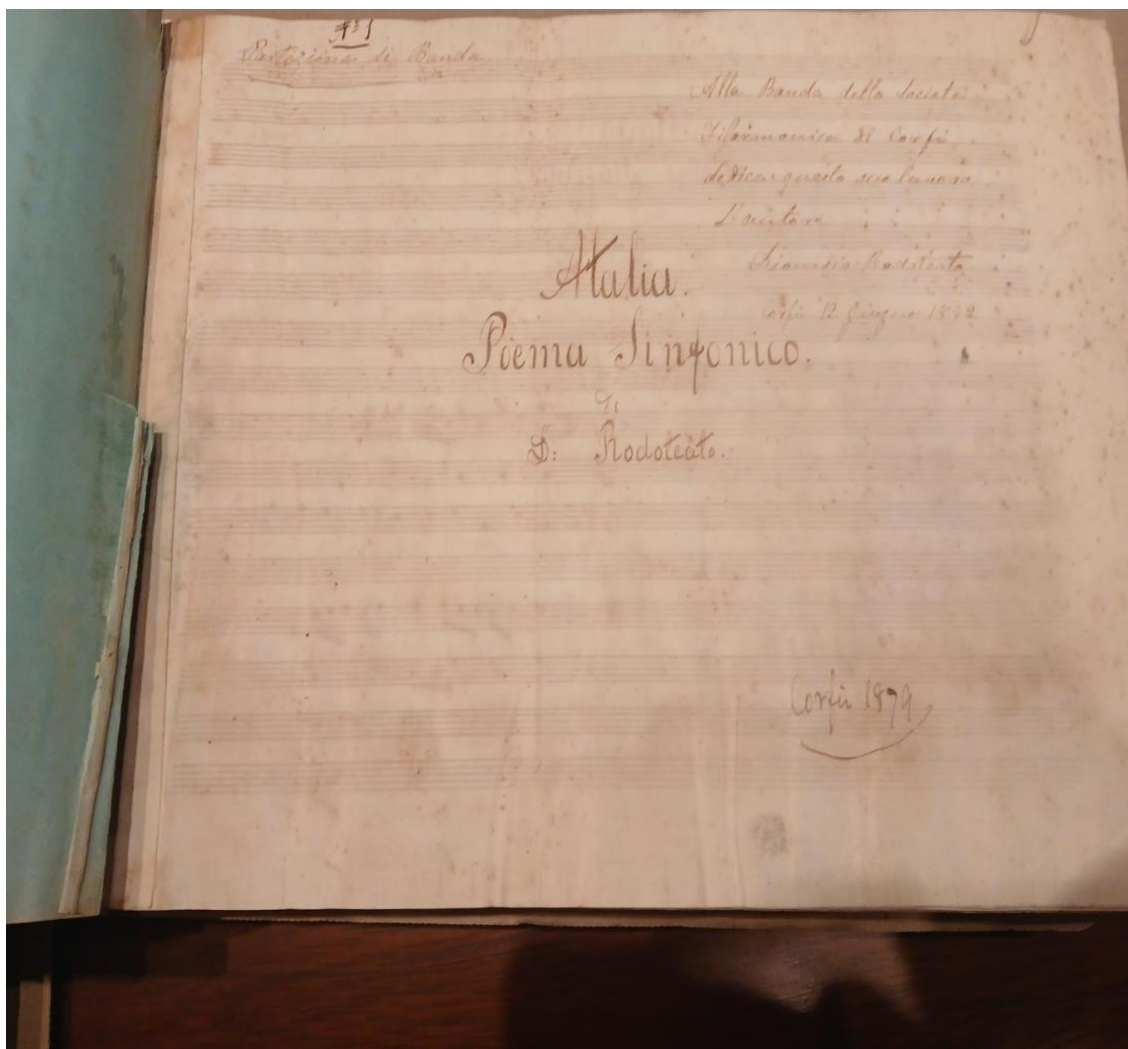 Nº 1
Partizione di Banda
Alla Banda della Società
Filarmonica di Corfù
dedica questo suo lavoro
L'autore
Dionisio Rodoteato
Corfù 12 Giugno 1892
Atalia.
Poema Sinfonico.
di
D: Rodoteato.
Corfù 1879